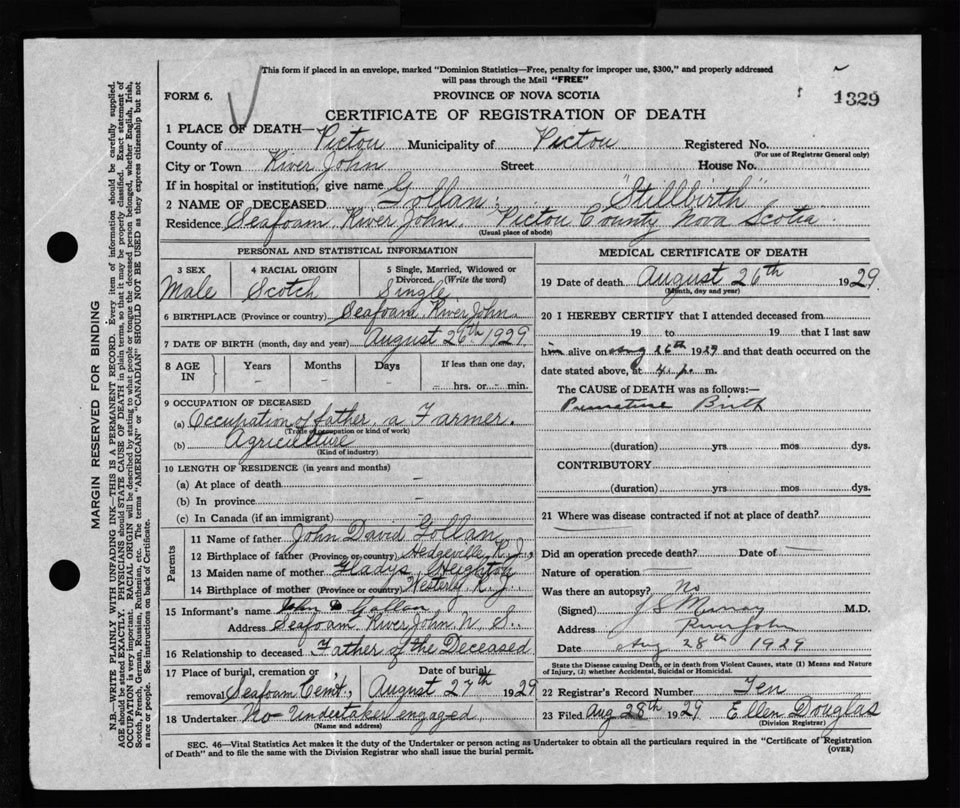 This form if placed in an envelope, marked "Dominion Statistics—Free, penalty for improper use, $300," and properly addressed
will pass through the Mail "FREE"
FORM 6.
PROVINCE OF NOVA SCOTIA
1329
CERTIFICATE OF REGISTRATION OF DEATH
1 PLACE OF DEATH—
County of Pictou Municipality of Pictou Registered No.
(For use of Registrar General only)
City or Town River John Street House No.
If in hospital or institution, give name
2 NAME OF DECEASED Gollan: "Stillbirth"
Residence Seafoam River John, Pictou County Nova Scotia
(Usual place of abode)
PERSONAL AND STATISTICAL INFORMATION
3 SEX 4 RACIAL ORIGIN 5 Single, Married, Widowed or Divorced. (Write the word)
Male Scotch Single
6 BIRTHPLACE (Province or country) Seafoam River John.
7 DATE OF BIRTH (month, day and year) August 26th 1929.
8 AGE IN Years Months Days If less than one day,
- - - - hrs. or - min.
9 OCCUPATION OF DECEASED
(a) Occupation of father, a Farmer.
(Trade, occupation or kind of work)
(b) Agriculture
(Kind of industry)
10 LENGTH OF RESIDENCE (in years and months)
(a) At place of death -
(b) In province -
(c) In Canada (if an immigrant) -
Parents
11 Name of father John David Gollan
12 Birthplace of father (Province or country) Hedgeville, R.J.,
13 Maiden name of mother Gladys Heighton
14 Birthplace of mother (Province or country) R.J.
15 Informant's name John D Gollan
Address Seafoam River John N. S.
16 Relationship to deceased Father of the Deceased
17 Place of burial, cremation or removal Seafoam Cem't., Date of burial August 27th 1929
18 Undertaker No Undertaker engaged
(Name and address)
MEDICAL CERTIFICATE OF DEATH
19 Date of death August 26th 1929
(Month, day and year)
20 I HEREBY CERTIFY that I attended deceased from
19 to 19 that I last saw
him alive on Aug 26th 1929 and that death occurred on the
date stated above, at 4 p. m.
The CAUSE OF DEATH was as follows:—
Premature Birth
(duration) yrs mos dys.
CONTRIBUTORY
(duration) yrs mos dys.
21 Where was disease contracted if not at place of death?
Did an operation precede death? Date of —
Nature of operation —
Was there an autopsy? No
(Signed) J S Murray M.D.
Address River John
Date Aug 28th 1929
State the Disease causing Death, or in death from Violent Causes, state (1) Means and Nature
of Injury, (2) whether Accidental, Suicidal or Homicidal.
22 Registrar's Record Number Ten
23 Filed Aug 28th 1929 Ellen Douglas
(Division Registrar)
SEC. 46—Vital Statistics Act makes it the duty of the Undertaker or person acting as Undertaker to obtain all the particulars required in the "Certificate of Registration
of Death" and to file the same with the Division Registrar who shall issue the burial permit. (OVER)
MARGIN RESERVED FOR BINDING
N.B.—WRITE PLAINLY WITH UNFADING INK—THIS IS A PERMANENT RECORD. Every item of information should be carefully supplied.
AGE should be stated EXACTLY. PHYSICIANS should STATE CAUSE OF DEATH in plain terms, so that it may be properly classified. Exact statement of
OCCUPATION is very important. RACIAL ORIGIN will be described by stating to what people or tongue the deceased person belonged, whether English, Irish,
Scotch, French, German, Russian, Ruthenian, etc. The terms "AMERICAN" or "CANADIAN" SHOULD NOT BE USED as they express citizenship but not
a race or people. See instructions on back of Certificate.